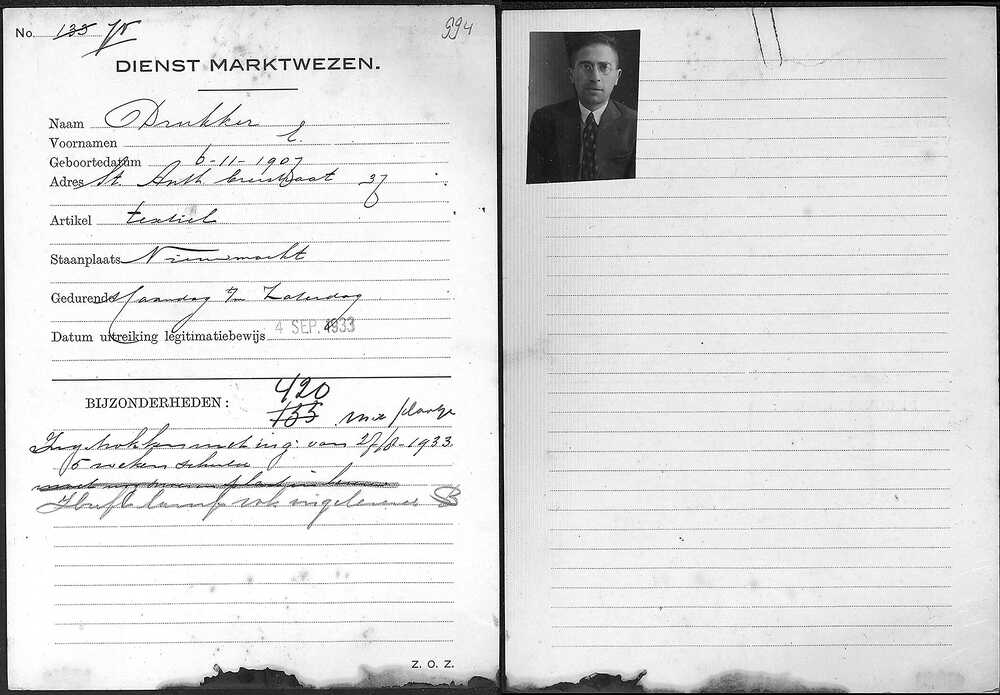 No. 135 594
DIENST MARKTWEZEN.
Naam Drukker
Voornamen E.
Geboortedatum 6-11-1907
Adres St. Anth. breestraat 37
Artikel textiel
Staanplaats Nieuwmarkt
Gedurende Maandag t/m Zaterdag
Datum uitreiking legitimatiebewijs 4 SEP. 1933
BIJZONDERHEDEN: 420
135
Ingetrokken met ing. van 27/8-1933.
5 weken schuld
Heeft lamp ook ingeleverd
Z. O. Z.